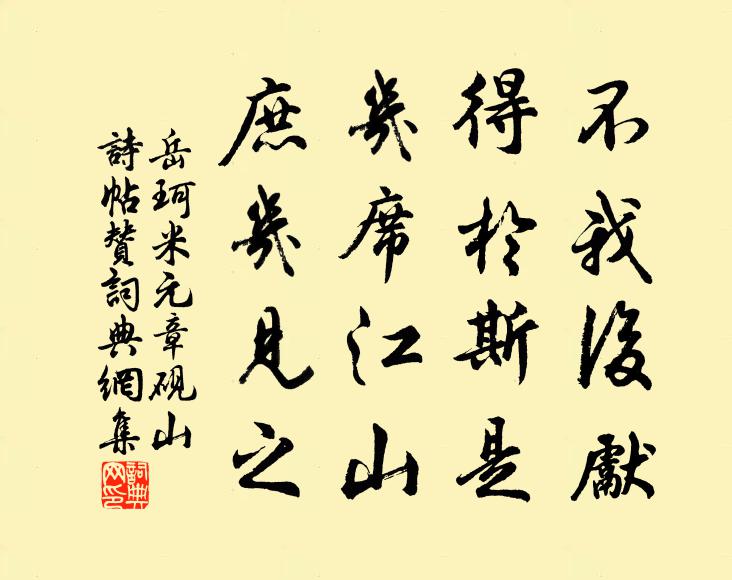 不我後獻
得於斯是
幾席江山
庶幾見之
岳珂米元章硯山
詩帖贊詞典網集
詞典网印